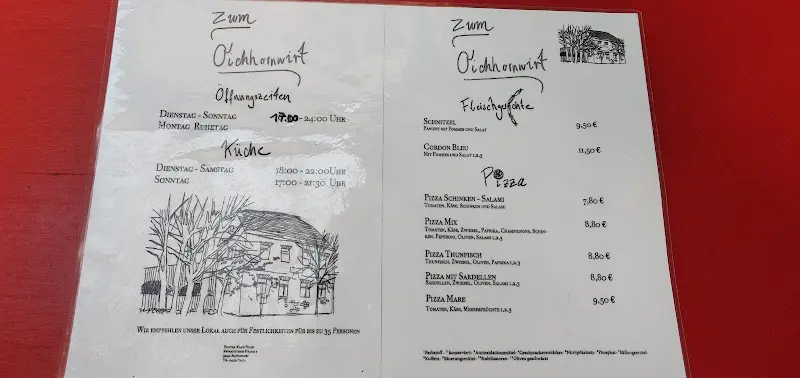 Zum
Oichhornwirt
Öffnungszeiten
Dienstag - Sonntag 17:00 - 24:00 Uhr
Montag Ruhetag
Küche
Dienstag - Samstag 18:00 - 22:00 Uhr
Sonntag 17:00 - 21:30 Uhr
Wir empfehlen unser Lokal auch für Festlichkeiten für bis zu 35 Personen
Zum
Oichhornwirt
Fleischgerichte
Schnitzel 9,50 €
Paniert mit Pommes und Salat
Cordon Bleu 11,50 €
Mit Pommes und Salat 1,2,3
Pizza
Pizza Schinken - Salami 7,80 €
Tomaten, Käse, Schinken und Salami
Pizza Mix 8,80 €
Tomaten, Käse, Zwiebel, Paprika, Champignons, Schin-
ken, Peperoni, Oliven, Salami 1,2,3
Pizza Thunfisch 8,80 €
Thunfisch, Zwiebel, Oliven, Paprika 1,2,3
Pizza mit Sardellen 8,80 €
Sardellen, Zwiebel, Oliven, Salami 1,2,3
Pizza Mare 9,50 €
Tomaten, Käse, Meeresfrüchte 1,2,3